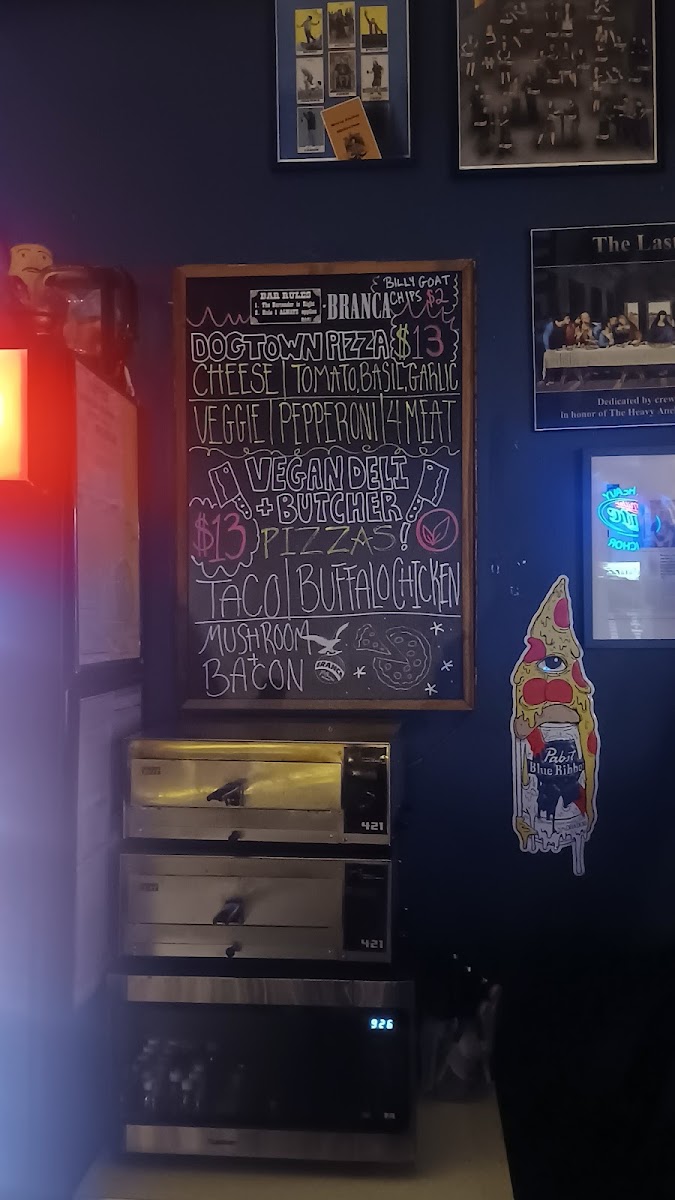 BAR RULES
1. The Bartender is Right
2. Rule 1 ALWAYS applies
BRANCA
BILLY GOAT
CHIPS $2
DOGTOWN PIZZA $13
CHEESE | TOMATO, BASIL, GARLIC
VEGGIE | PEPPERONI | 4 MEAT
VEGAN DELI
+ BUTCHER
$13 PIZZAS!
TACO | BUFFALO CHICKEN
MUSHROOM
+
BACON
BRANCA
The Last
Dedicated by crew
in honor of The Heavy Anc
HEAVY
Lite
NCHOR
Pabst
Blue Ribbo
421
421
926